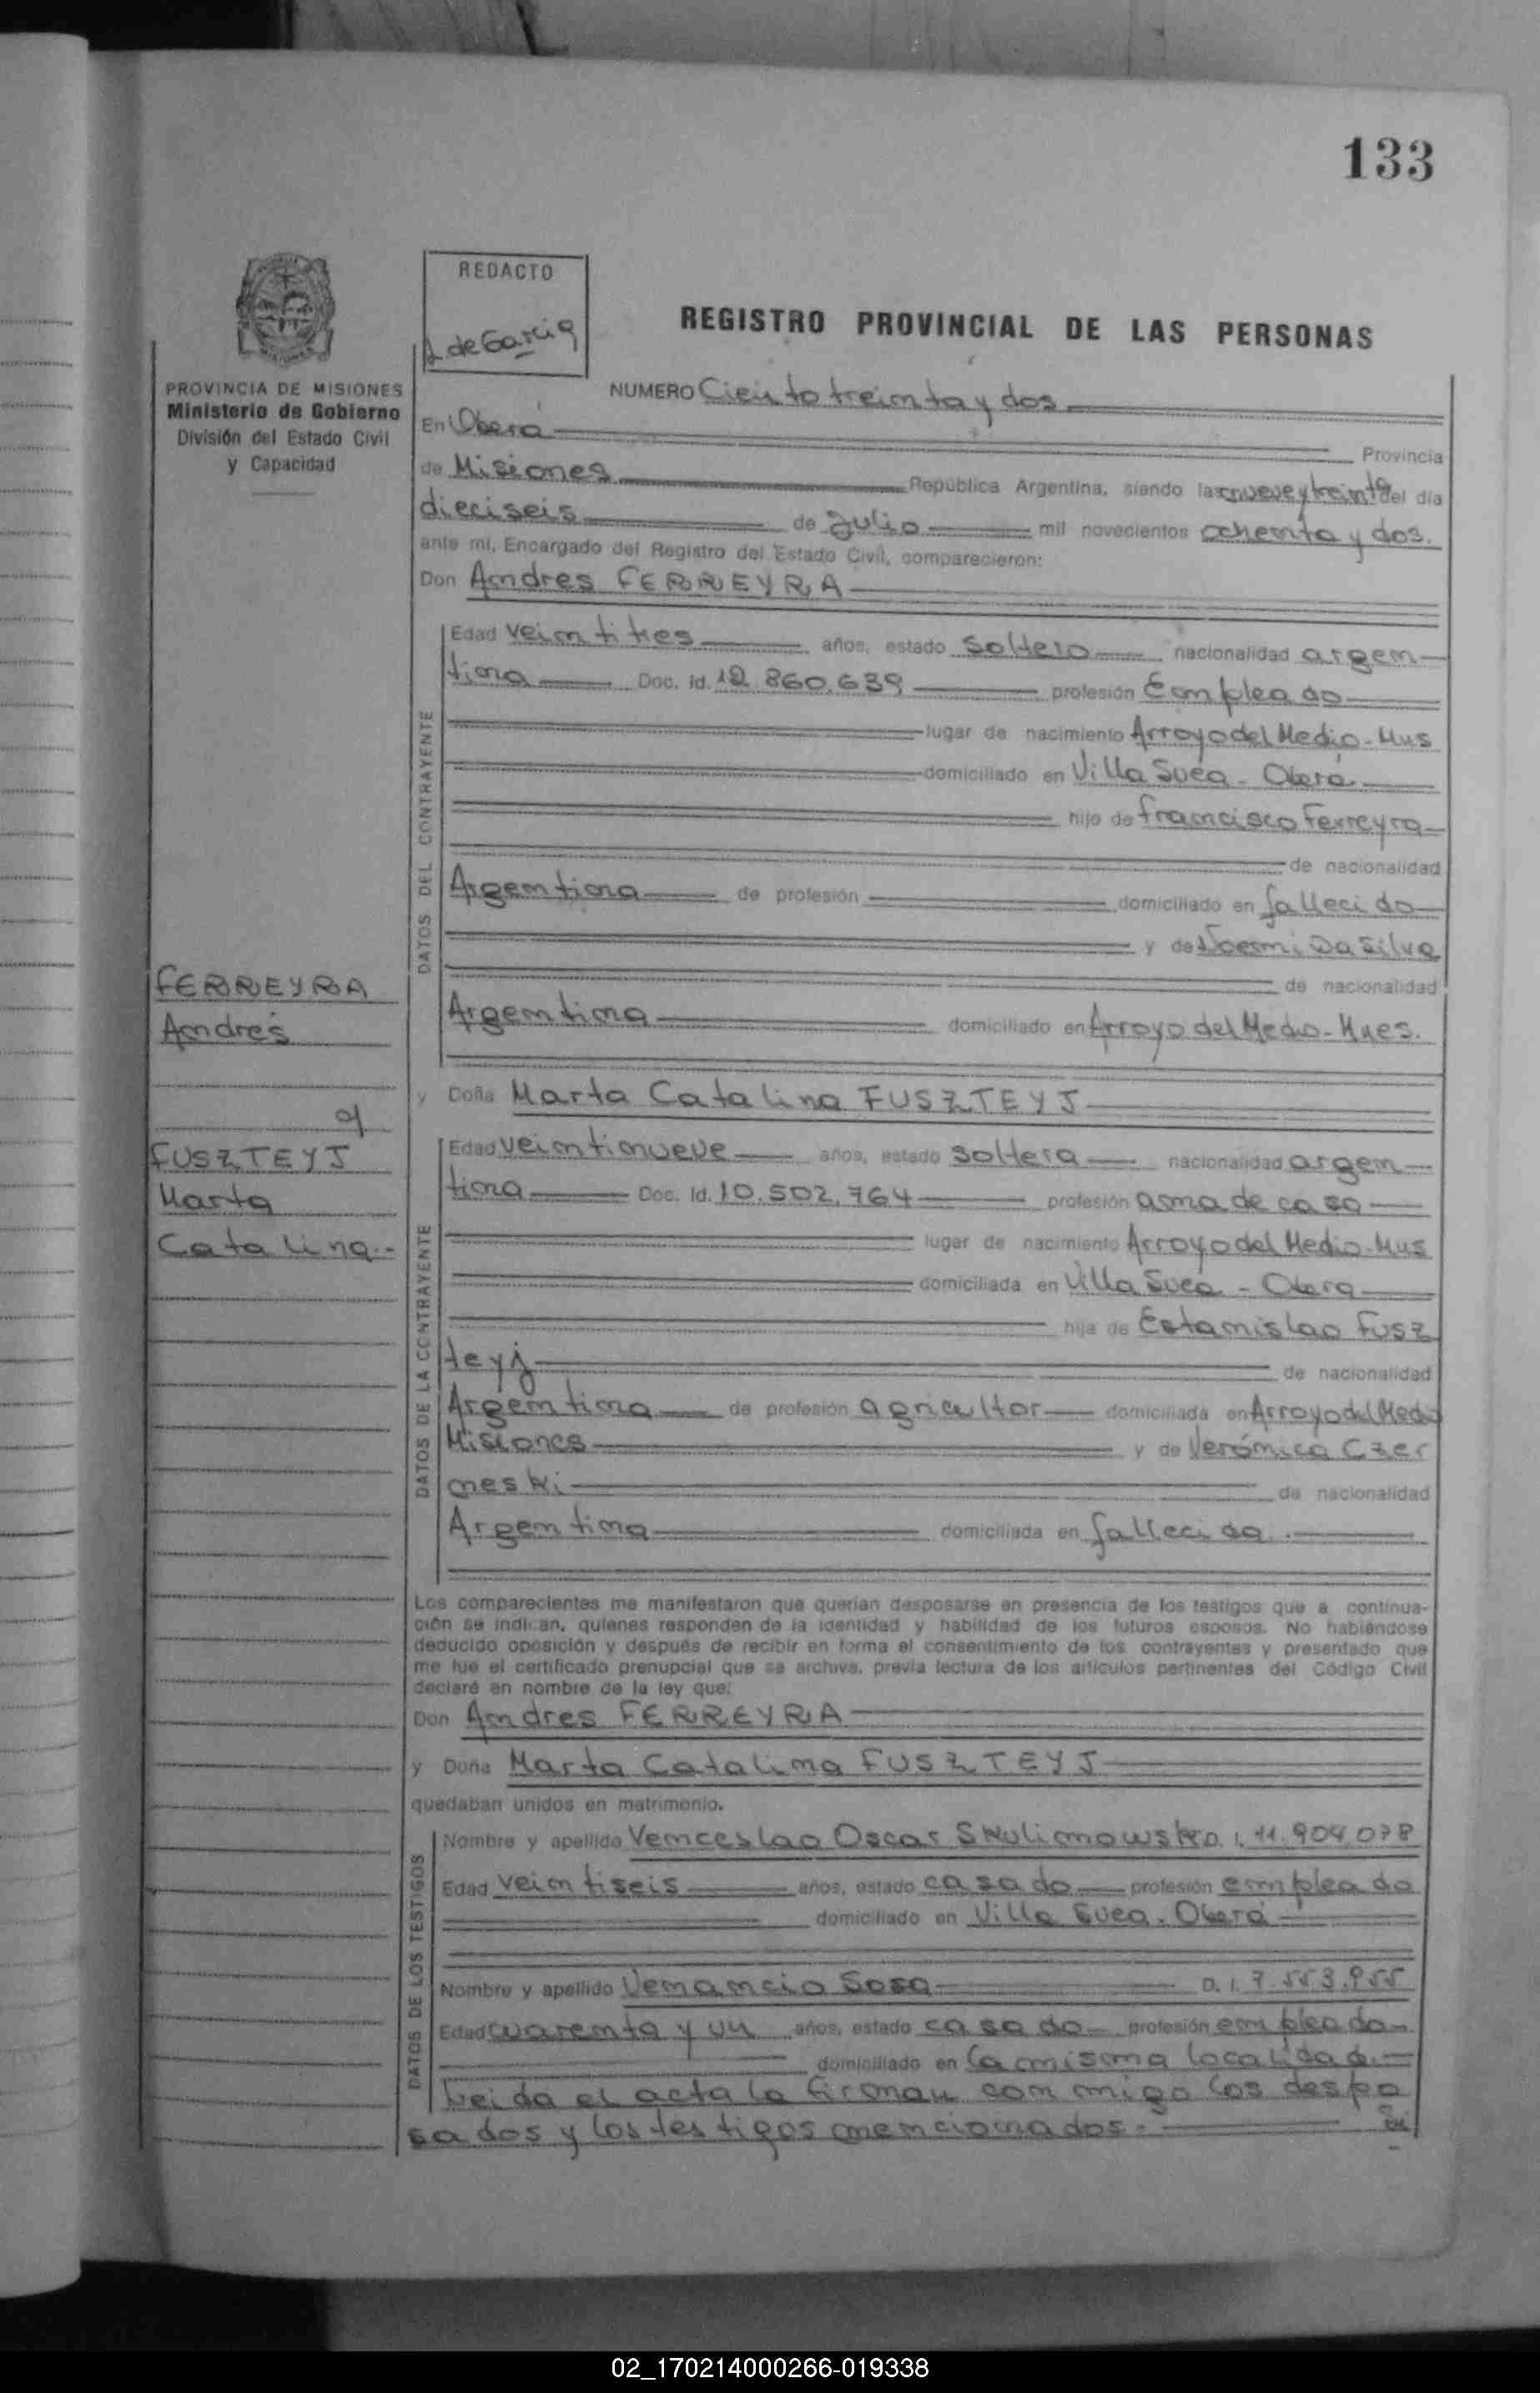 133
REDACTO
L de Garcia
REGISTRO PROVINCIAL DE LAS PERSONAS
PROVINCIA DE MISIONES
Ministerio de Gobierno
División del Estado Civil
y Capacidad
NUMERO Ciento treinta y dos
En Oberá
Provincia
de Misiones República Argentina, siendo las nueve y treinta del día
dieciseis de Julio mil novecientos ochenta y dos.
ante mi, Encargado del Registro del Estado Civil, comparecieron:
Don Andres FERREYRA
DATOS DEL CONTRAYENTE
Edad veintitres años, estado soltero nacionalidad argen-
tina Doc. Id. 12.860.639 profesión Empleado
lugar de nacimiento Arroyo del Medio-Mns
domiciliado en Villa Svea - Oberá
hijo de francisco Ferreyra
de nacionalidad
Argentina de profesión domiciliado en fallecido
y de Noemi Da Silva
de nacionalidad
Argentina domiciliado en Arroyo del Medio-Mnes.
FERREYRA
Andrés
c/
FUSZTEYJ
Marta
Catalina.-
y Doña Marta Catalina FUSZTEYJ
DATOS DE LA CONTRAYENTE
Edad veintinueve años, estado soltera nacionalidad argen-
tina Doc. Id. 10.502.764 profesión ama de casa
lugar de nacimiento Arroyo del Medio-Mns
domiciliada en Villa Svea - Oberá
hija de Estanislao Fusz
teyj de nacionalidad
Argentina de profesión agricultor domiciliada en Arroyo del Medio
Misiones y de Verónica Czer
neski de nacionalidad
Argentina domiciliada en fallecida.
Los comparecientes me manifestaron que querían desposarse en presencia de los testigos que a continua-
ción se indican, quienes responden de la identidad y habilidad de los futuros esposos. No habiéndose
deducido oposición y después de recibir en forma el consentimiento de los contrayentes y presentado que
me fue el certificado prenupcial que se archiva, previa lectura de los artículos pertinentes del Código Civil
declaré en nombre de la ley que:
Don Andres FERREYRA
y Doña Marta Catalina FUSZTEYJ
quedaban unidos en matrimonio.
DATOS DE LOS TESTIGOS
Nombre y apellido Venceslao Oscar Skulimowski D.I. 11.904.078
Edad veintiseis años, estado casado profesión empleado
domiciliado en Villa Svea. Oberá
Nombre y apellido Venancio Sosa D.I. 7.553.955
Edad cuarenta y un años, estado casado profesión empleado-
domiciliado en la misma localidad.-
Leida el acta la firman conmigo los despo
sados y los testigos mencionados.-
02_170214000266-019338